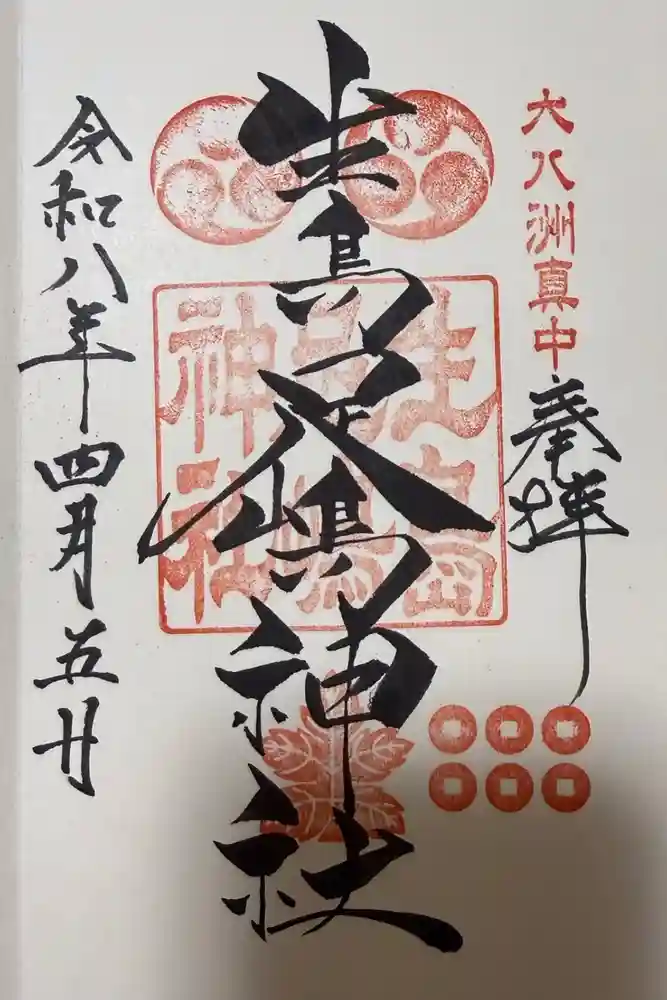 大八洲真中
奉拝
生島足嶋神社
生島
足嶋
神社
令和八年四月五日